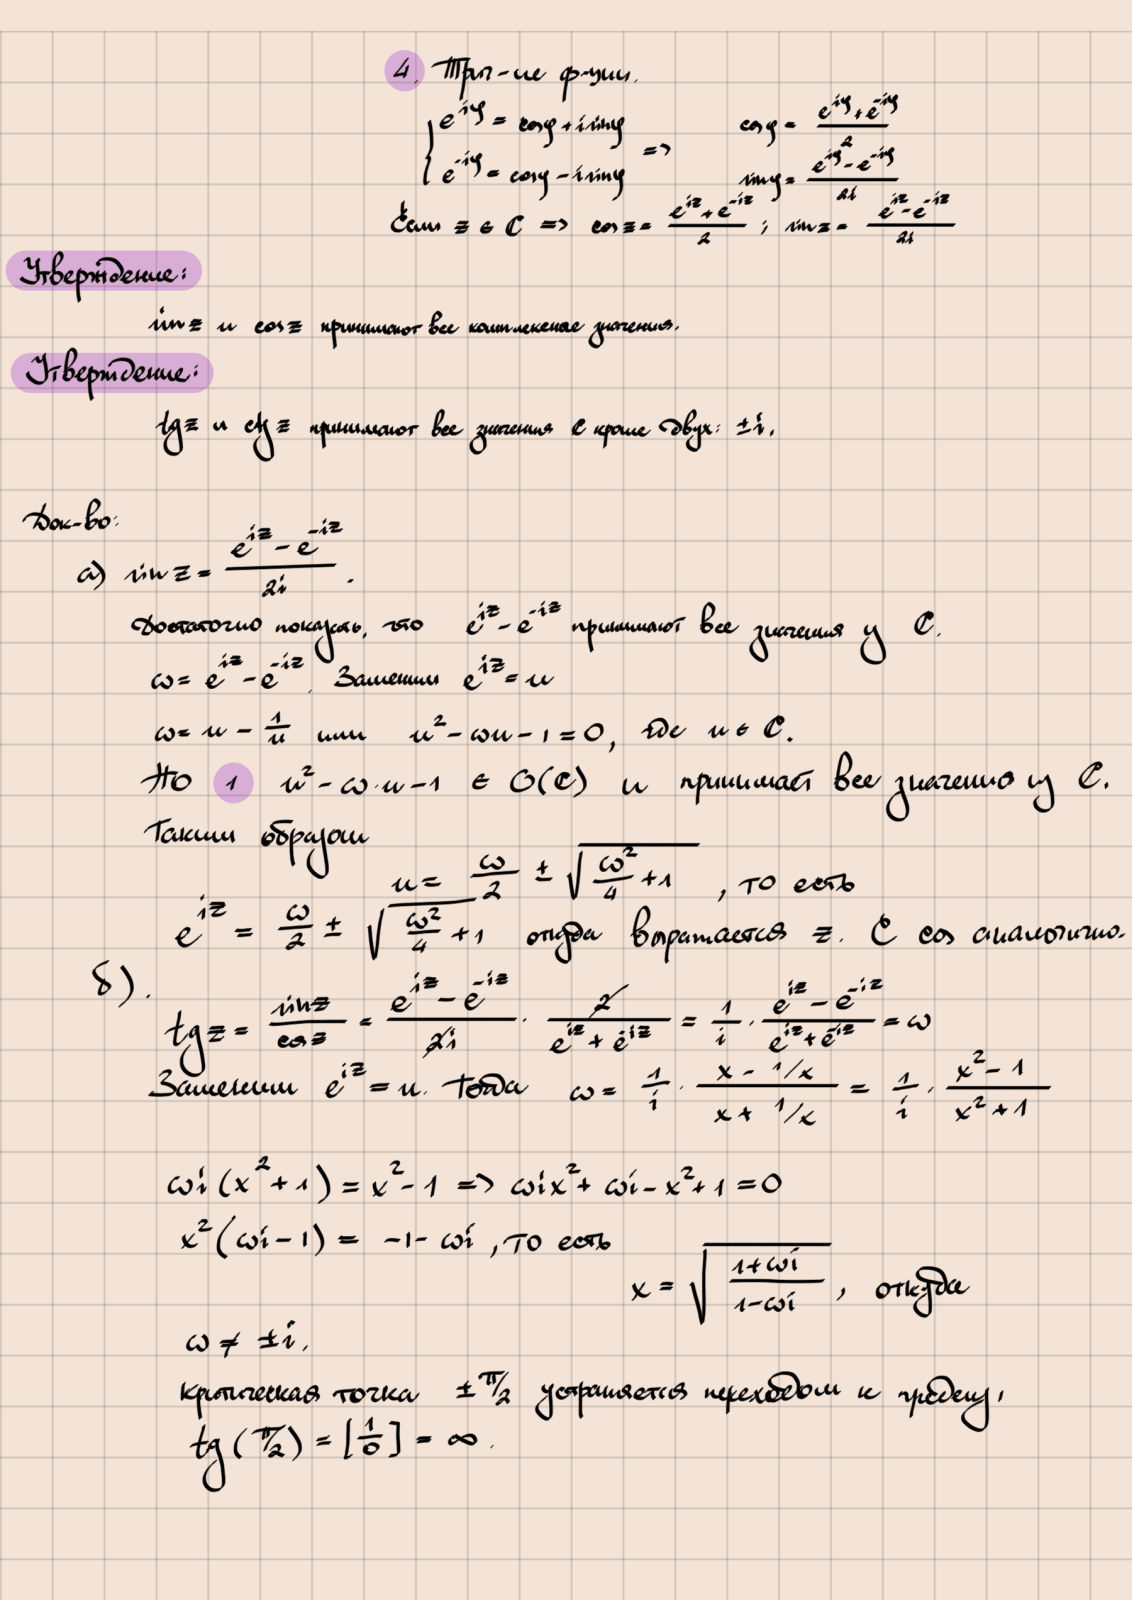 4. Триг-ие ф-ции.
e^{iφ} = cosφ + i sinφ => cosφ = (e^{iφ} + e^{-iφ})/2
e^{-iφ} = cosφ - i sinφ sinφ = (e^{iφ} - e^{-iφ})/2i
Если z ∈ ℂ => cos z = (e^{iz} + e^{-iz})/2 ; sin z = (e^{iz} - e^{-iz})/2i
Утверждение:
sin z и cos z принимают все комплексные значения.
Утверждение:
tg z и ctg z принимают все значения ℂ кроме двух: ±i.
Док-во:
а) sin z = (e^{iz} - e^{-iz})/2i .
Достаточно показать, что e^{iz} - e^{-iz} принимают все значения из ℂ.
ω = e^{iz} - e^{-iz}. Заменим e^{iz} = u
ω = u - 1/u или u² - ωu - 1 = 0, где u ∈ ℂ.
НО 1 u² - ω·u - 1 ∈ O(ℂ) и принимает все значению из ℂ.
Таким образом
u = ω/2 ± √(ω²/4 + 1) , то есть
e^{iz} = ω/2 ± √(ω²/4 + 1) откуда выражается z. С cos аналогично.
б).
tg z = sin z/cos z = (e^{iz} - e^{-iz})/2i · 2/(e^{iz} + e^{-iz}) = 1/i · (e^{iz} - e^{-iz})/(e^{iz} + e^{-iz}) = ω
Заменим e^{iz} = u. Тогда ω = 1/i · (x - 1/x)/(x + 1/x) = 1/i · (x² - 1)/(x² + 1)
ωi (x² + 1) = x² - 1 => ωix² + ωi - x² + 1 = 0
x² (ωi - 1) = -1 - ωi , то есть
x = √((1 + ωi)/(1 - ωi)) , откуда
ω ≠ ±i.
критическая точка ±π/2 устраняется переходом к пределу,
tg (π/2) = [1/0] = ∞.